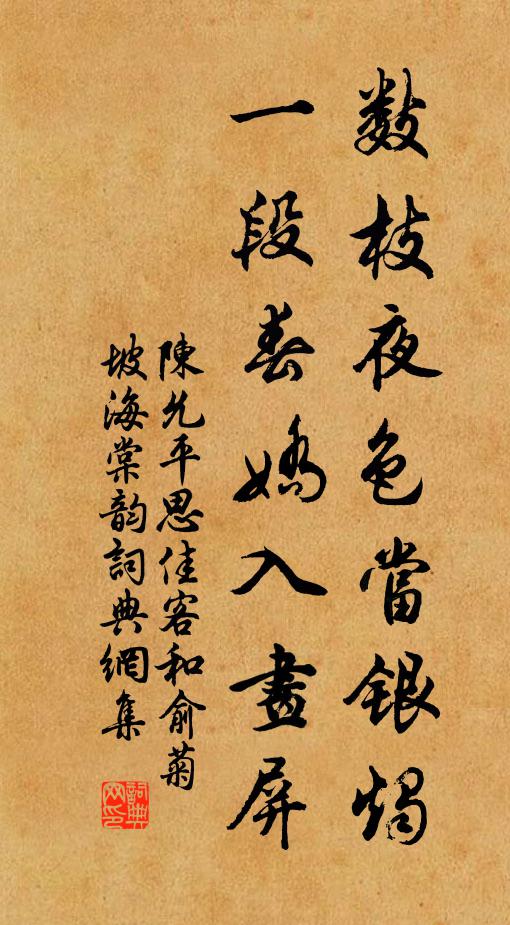 数枝夜色當銀燭
一段春嬌入畫屏
陳允平思佳客和俞菊
坡海棠韵詞典網集
詞典网印